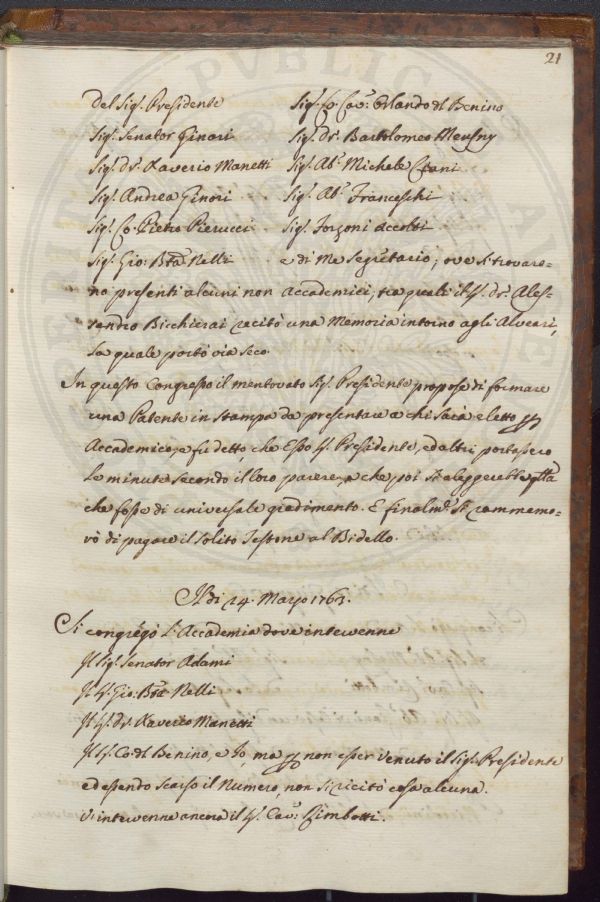 21
Del Sig.r Presidente
Sig.r Co: Cav.r Orlando del Benino
Sig.r Senator Ginori
Sig.r Dr. Bartolomeo Mesny
Sig.r Dr. Xaverio Manetti
Sig.r Ab.e Michele Ciani
Sig.r Andrea Ginori
Sig.r Ab.e Franceschi
Sig.r Co: Pietro Pierucci
Sig.r Forzoni Accolti
Sig.r Gio: Bta Nelli
e di Me Segretario; ove si trovaro-
no presenti alcuni non Accademici, tra quali il S. Dr. Ales-
sandro Bicchierai recitò una Memoria intorno agli Alveari,
la quale portò via seco.
In questo Congresso il mentovato Sig.r Presidente propose di formare
una Patente in stampa da presentare a chi sarà eletto per
Accademico, e fu detto, che Esso S. Presidente, ed altri portassero
le minute secondo il loro parere, e che poi si eleggerebbe qlla
che fosse di universale gradimento. E finalm.te si rammemo-
rò di pagare il solito Testone al Bidello.
Il dì 24. Marzo 1763.
Si congregò l'Accademia dove intervenne
Il Sig.r Senator Adami
Il S. Gio: Bta Nelli
Il S. Dr. Xaverio Manetti
Il S. Co: del Benino, e Io, ma per non esser venuto il Sig.r Presidente
ed essendo scarso il Numero, non si recitò cosa alcuna.
Vi intervenne ancora il S. Cav.r